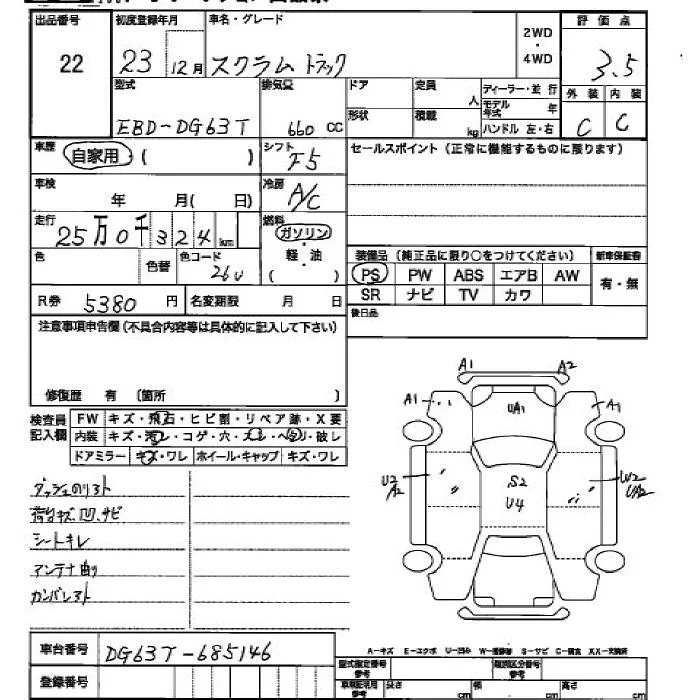 出品番号 初度登録年月 車名・グレード 2WD・4WD 評価点
22 23 12月 スクラム トラック 3.5
型式 排気量 ドア 定員 人 ディーラー・並行 外装 内装
EBD-DG63T 660 cc 形状 積載 kg モデル年式 年 ハンドル 左・右 C C
車歴 自家用 ( ) シフト F5 セールスポイント(正常に機能するものに限ります)
車検 年 月( 日) 冷房 A/C
走行 25万0千324km 燃料 ガソリン・軽・油 ( )
色 色替 色コード 26U 装備品(純正品に限り○をつけてください) 新車保証書
PS PW ABS エアB AW 有・無
R券 5380 円 名変期限 月 日 SR ナビ TV カワ
注意事項申告欄(不具合内容等は具体的に記入して下さい) 後日品
修復歴 有 〔箇所 〕
検査員記入欄 FW キズ・飛石・ヒビ割・リペア跡・X要
内装 キズ・汚レ・コゲ・穴・スレ・ヘタリ・破レ
ドアミラー キズ・ワレ ホイール・キャップ キズ・ワレ
A1 A2
A1 UA1 A1
U2 A2 S2 U4 W2 UA2
ダッシュのリヌト
荷台キズ凹、サビ
シートキレ
アンテナ曲り
カンバンヌト
A-キズ E-エクボ U-凹み W-補修跡 S-サビ C-腐食 XX-交換済
車台番号 DG63T-685146
登録番号 型式指定番号 参考 類別区分番号 参考
車検証記載 参考 長さ cm 幅 cm 高さ cm